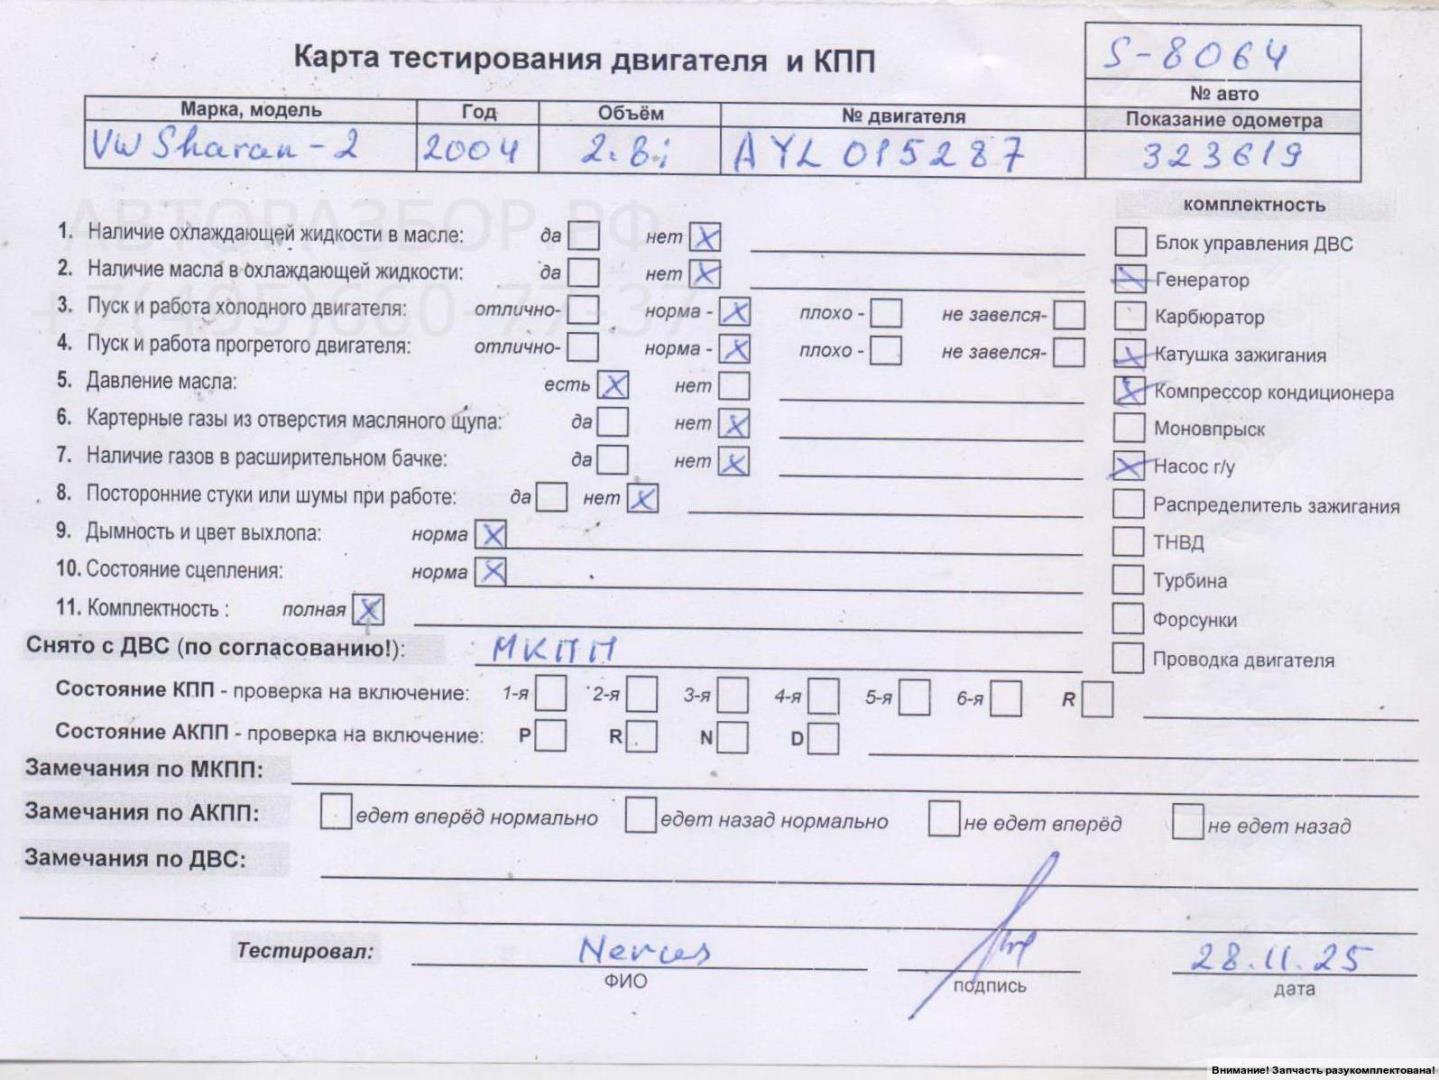 Карта тестирования двигателя и КПП
S-8064
№ авто
Марка, модель Год Объём № двигателя Показание одометра
VW Sharan-2 2004 2.8i AYL 015287 323619
АВТОРАЗБОР.РФ
+7(495)660-77-37
комплектность
1. Наличие охлаждающей жидкости в масле: да нет X
Блок управления ДВС
2. Наличие масла в охлаждающей жидкости: да нет X
X Генератор
3. Пуск и работа холодного двигателя: отлично- норма - X плохо - не завелся-
Карбюратор
4. Пуск и работа прогретого двигателя: отлично- норма - X плохо - не завелся-
X Катушка зажигания
5. Давление масла: есть X нет
X Компрессор кондиционера
6. Картерные газы из отверстия масляного щупа: да нет X
Моновпрыск
7. Наличие газов в расширительном бачке: да нет X
X Насос г/у
8. Посторонние стуки или шумы при работе: да нет X
Распределитель зажигания
9. Дымность и цвет выхлопа: норма X
ТНВД
10. Состояние сцепления: норма X
Турбина
11. Комплектность : полная X
Форсунки
Снято с ДВС (по согласованию!): МКПП
Проводка двигателя
Состояние КПП - проверка на включение: 1-я 2-я 3-я 4-я 5-я 6-я R
Состояние АКПП - проверка на включение: P R N D
Замечания по МКПП:
Замечания по АКПП: едет вперёд нормально едет назад нормально не едет вперёд не едет назад
Замечания по ДВС:
Тестировал: 28.11.25
ФИО подпись дата
Внимание! Запчасть разукомплектована!